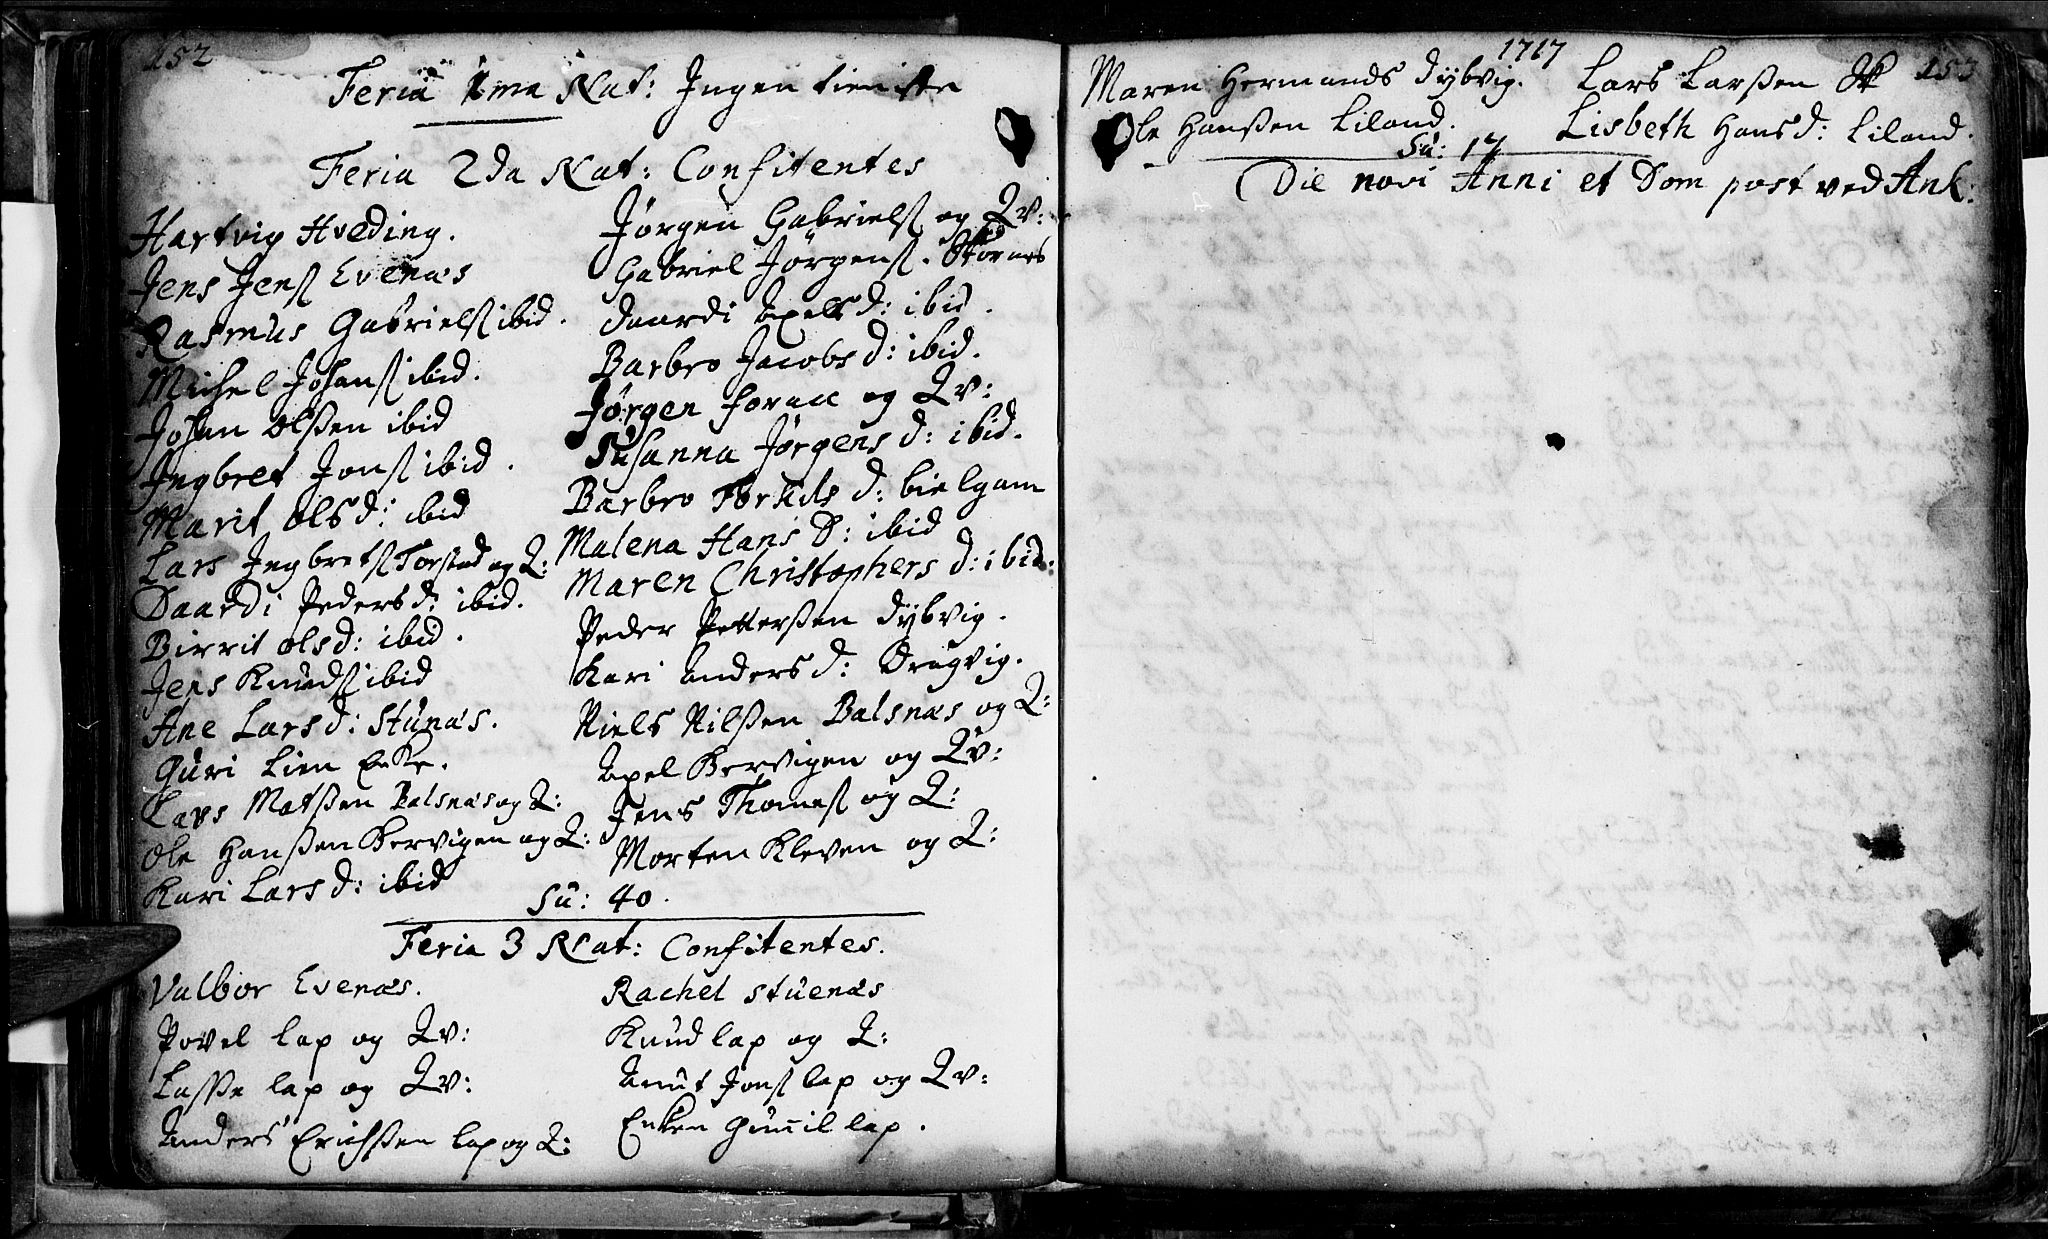 152
Feria 1ma Nat: Ingen tieniste
Feria 2da Nat: Confitentes
Hartvig Hveding.
Jens Jens Evenæs
Rasmus Gabriels ibid.
Michel Johans ibid.
Johan Olssen ibid
Ingbret Jons ibid.
Marit Olsd: ibid
Lars Ingbrets Torstad og Q:
Daardi Pedersd: ibid.
Birrit Olsd: ibid.
Jens Knuds ibid
Ane Larsd: Stunæs.
Guri Lien Enke.
Lars Matssen Balsnæs og Q:
Ole Hanssen Bervigen og Q:
Kari Larsd: ibid
Jørgen Gabriels og Qv:
Gabriel Jørgens.
Daardi Axelsd: ibid.
Barbro Jacobsd: ibid.
Jørgen og Qv:
Susanna Jørgensd: ibid.
Barbro d: bielgam
Malena Hans D: ibid
Maren Christophers d: ibid.
Peder Pettersen Dybvig.
Kari Andersd: Dragvig.
Niels Nilssen Balsnæs og Q:
Axel Bervigen og Qv:
Jens Thomes og Q:
Morten Kleven og Q:
Su: 40.
Feria 3 Nat: Confitentes.
Valbor Evenæs.
Povel lap og Qv:
Lasse lap og Qv:
Anders Erichssen lap og Q:
Rachel Stuenæs
Knud lap og Q:
Anut Jons lap og Qv:
Enken Gunil lap.
1717
153
Maren Hermands Dybvig. Lars Larssen
Ole Hanssen Liland. Lisbeth Hansd: Liland.
Su: 17
Die novi Anni et Dom post ved Ank: